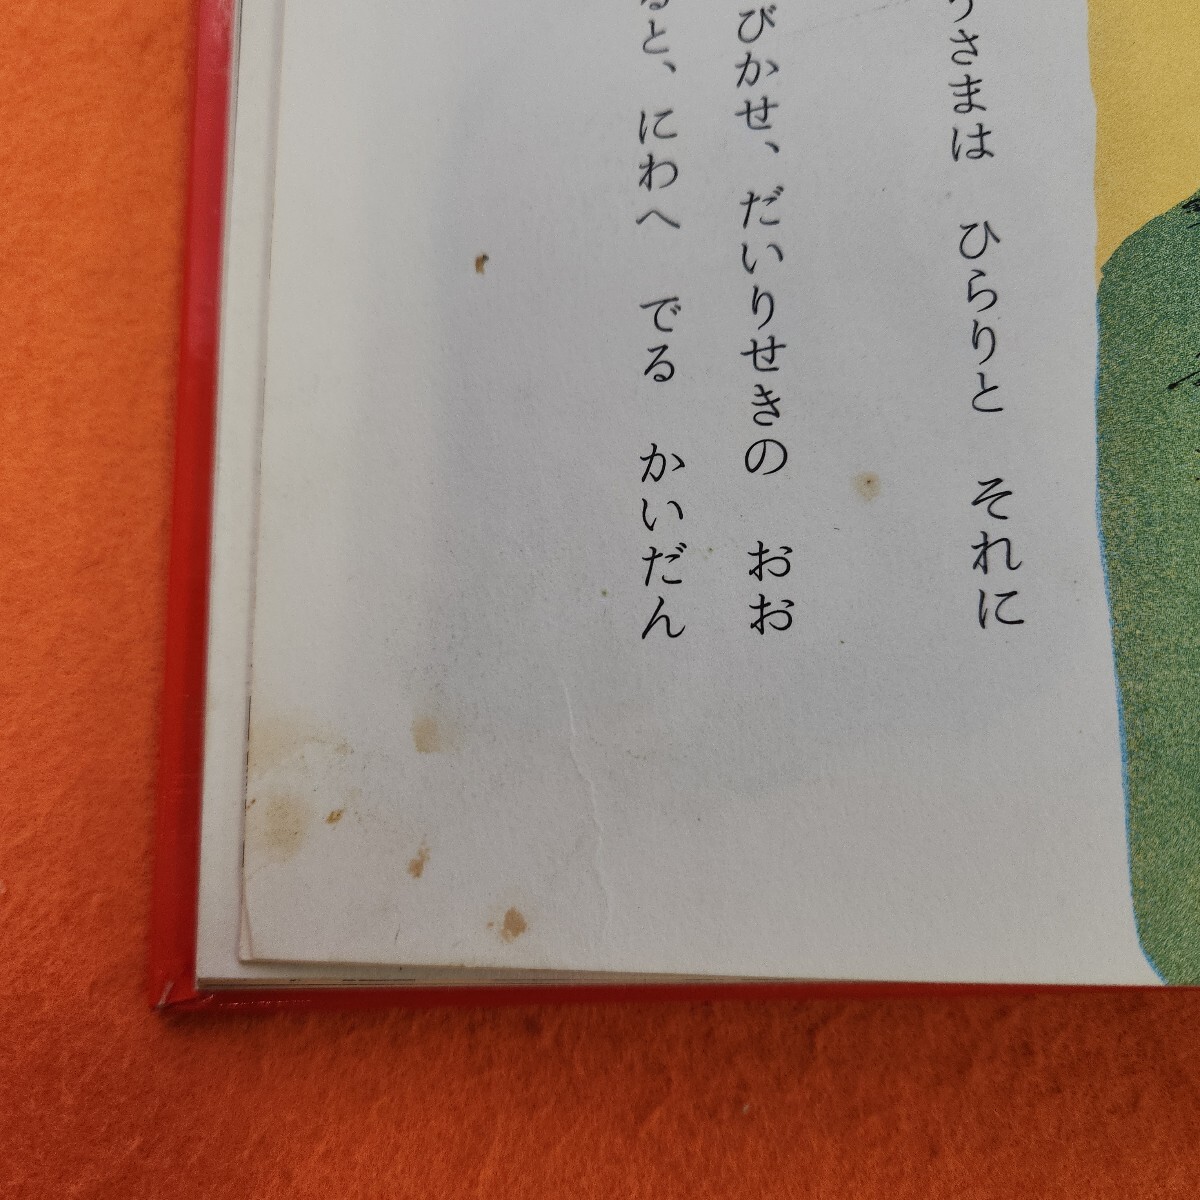 うさまは ひらりと それに
びかせ、だいりせきの おお
ると、にわへ でる かいだん